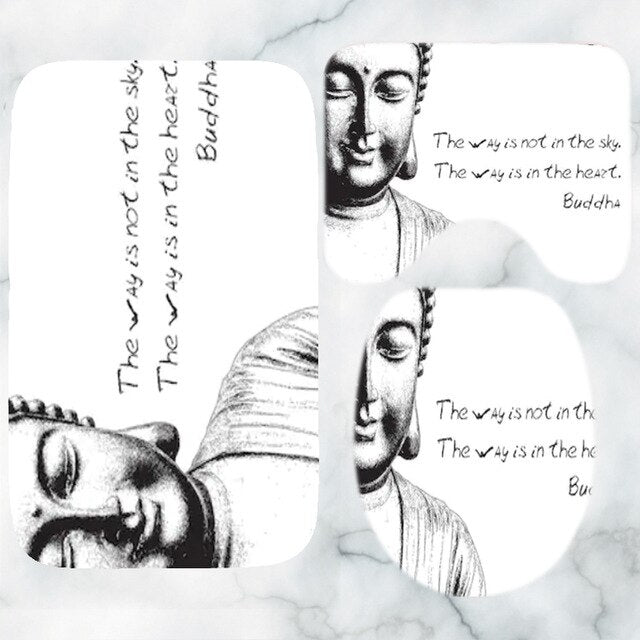 The way is not in the sky.
The way is in the heart.
Buddha
The way is not in the sky.
The way is in the heart.
Buddha
The way is not in th
The way is in the he
Bu